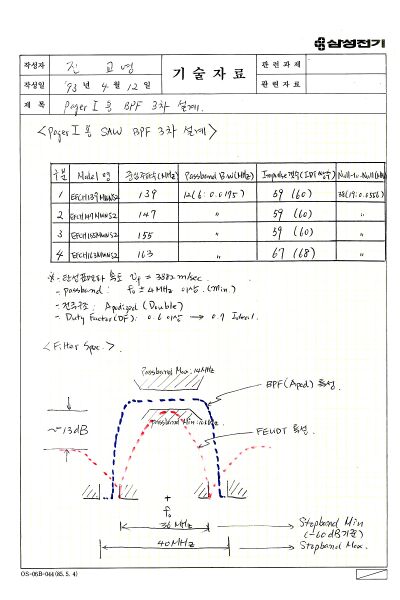 삼성전기
작성자 진 교영 기술자료 관련과제
작성일 '93 년 4 월 12 일 관련자료
제 목 Pager I 용 BPF 3차 설계.
<Pager I 용 SAW BPF 3차 설계>
구분 Model 명 중심주파수(MHz) Passband B.W(MHz) Impulse 갯수(IDT 쌍수) Null-to-Null(MHz)
1 139 12(6:0.0195) 59 (60) 38(19:0.0556)
2 147 〃 59 (60) 〃
3 155 〃 59 (60) 〃
4 163 〃 67 (68) 〃
※ - 탄성표면파 속도 = m/sec.
- passband : f₀ ± 4 MHz 이상. (Min.)
- 전극구조 : Apodized (Double)
- Duty Factor(DF) : 0.6 이상 → 0.7
<Filter Spec.>
Passband Max : 14MHz
BPF(Apod) 특성.
Passband Min
~13dB
특성.
f₀
36 MHz
Stopband Min
(-60dB기준)
40MHz
Stopband Max.
OS-05B-044(85.5.4)